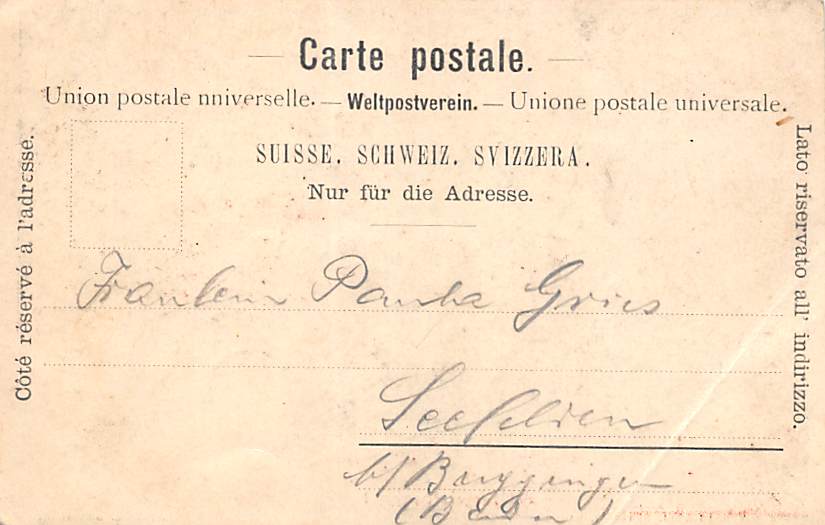 Carte postale.
Union postale nniverselle. — Weltpostverein. — Unione postale universale.
SUISSE. SCHWEIZ. SVIZZERA.
Nur für die Adresse.
Côté réservé à l'adresse.
Lato riservato all' indirizzo.
Fräulein Paula Gries
Seefelden
b/
(Baden)